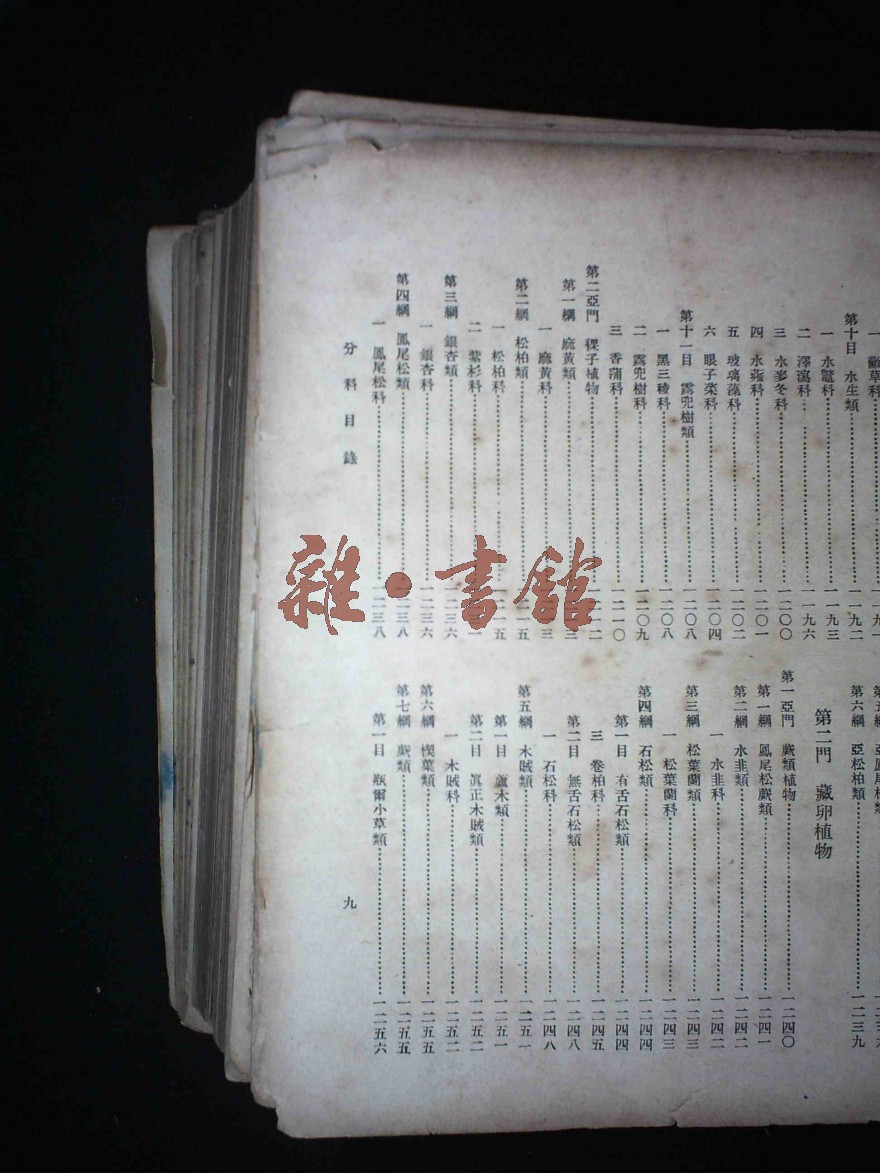 科草
第十目 水生類 一一九二
一 水鼈科 一一九三
二 澤瀉科 一一九六
三 水麥冬科 一二〇〇
四 水蕹科 一二〇一
五 玻璃藻科 一二〇二
六 眼子菜科 一二〇四
第十一目 露兜樹類 一二〇八
一 黑三稜科 一二〇八
二 露兜樹科 一二〇九
三 香蒲科 一二一〇
第二亞門 稞子植物
第一綱 麻黃類
一 麻黃科
第二綱 松柏類
一 松柏科
二 紫杉科
第三綱 銀杏類 一二三六
一 銀杏科 一二三六
第四綱 鳳尾松類 一二三八
一 鳳尾松科 一二三八
第六綱 亞松柏類 一二三九
第二門 藏卵植物
第一亞門 蕨類植物 一二四〇
第一綱 鳳尾松蕨類 一二四一
第二綱 水韭類 一二四二
一 水韭科 一二四二
第三綱 松葉蘭類 一二四三
一 松葉蘭科 一二四三
第四綱 石松類 一二四四
第一目 有舌石松類 一二四四
三 卷柏科 一二四五
第二目 無舌石松類 一二四八
一 石松科 一二四八
第五綱 木賊類 一二五一
第一目 蘆木類 一二五一
第二目 眞正木賊類 一二五二
一 木賊科 一二五二
第六綱 楔葉類 一二五五
第七綱 蕨類 一二五五
第一目 瓶爾小草類 一二五六
分科目錄
九
雜·書館